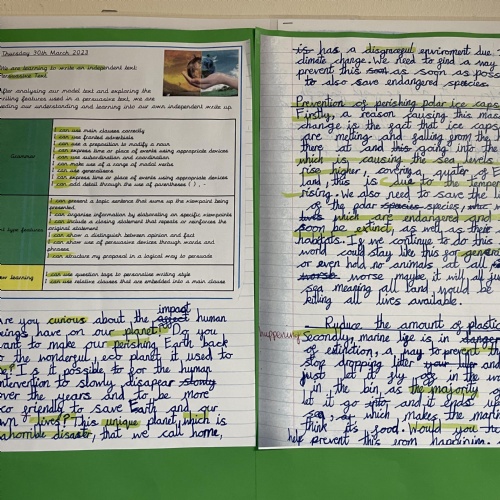 Thursday 30th March 2023
We are learning to write an independent text:
Persuasive Text
After analysing our model text and exploring the
writing features used in a persuasive text, we are
our understanding and learning into our own independent write up.
Grammar
I can use main clauses correctly
I can use fronted adverbials
I can use a preposition to modify a noun
I can express time or place of events using appropriate devices
I can use subordination and coordination
I can make use of a range of modal verbs
I can use generalisers
I can express time or place of events using appropriate devices
I can add detail through the use of parentheses ( ) , -
text type features
I can present a topic sentence that sums up the viewpoint being
presented
I can organise information by elaborating on specific viewpoints
I can include a closing statement that reinforces the
original statement
I can show a distinguish between opinion and fact
I can show use of persuasive devices through words and
phrases
I can structure my proposal in a logical way to persuade
learning
I can use question tags to personalise writing style
I can use relative clauses that are embedded into a main clause
Are you curious about the affect impact human
beings have on our planet? Do you
want to make our perishing Earth back
to the wonderful, eco planet it used to
be? Is it possible to for the human
intervention to slowly disapear slowly
over the years and to be more
eco friendly to save Earth and our
own lives? This unique planet which is
a horrible disaster, that we call home,
is has a disgraceful enviroment due
climate change. We need to find a way
prevent this soon as soon as
to also save endangered species.
Prevention of perishing polar ice caps
Firstly, a reason causing this
change is the fact that ice caps
are melting and falling from the
there at and this going into the
which is causing the sea levels
rise higher, covering a quater of
land, this is due to the
rising. We also need to save the
of the polar species species, who
which are endangered and
soon be extinct, as well as their
habitats. If we continue to do this
world could stay like this for
or even had no animals at all
worse maybe, it will all just
sea meaning all land would be
killing all lives available.
Ryduce the amount of plastic
happening
Secondly, marine life is in danger
of extinction, a way to prevent
stop dropping litter your litter and
just let it fly off in the
in the bin, as the majority of
let it go into, and it ends up
sea, or which makes the
think its food. Would you
help prevent this from happining.